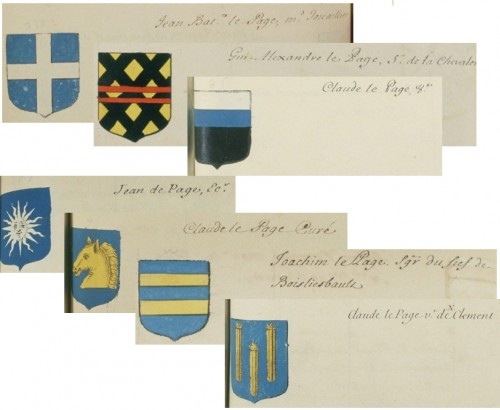 Jean Bap.te le Page, m.d Jouaillier
Gui-Alexandre le Page, S.r de la Chevaler
Claude le Page
Jean de Page, Ec.r
Claude le Page Curé
Joachim le Page Sgr du fief de
Boistiesbault
Claude le Page v.e de N. Clement